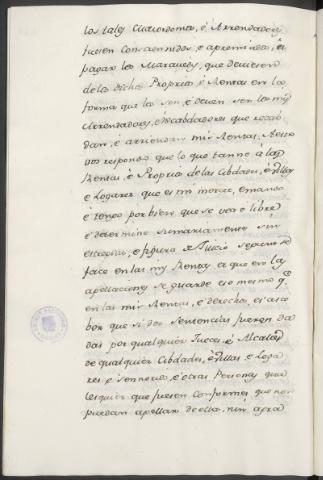 los tales Maiordomos, é Arrendadores
fuesen constreñidos, é apremiados, á
pagar los Maravedis, que devieren
de los dichos Propios é Rentas en la
forma que lo son, é deven ser los mis
Arrendadores, é Recabdadores que recab
dan, é arriendan mis Rentas. A esto
vos respondo que lo que tanne á las
Rentas, é Propios de las Cibdades, é Villas
é Logares que es mi merced, é mando
é tengo por bien que se vea é libre
é determine sumariamente sin
estrepitu, é figura de Juicio segund se
face en las mis Rentas, et que en las
apellaciones se guarde eso mesmo qe.
en las mis Rentas, é derechos, es a sa
ber que si dos sentencias fueren da
das por qualquier Jueces, é Alcaldes
de qualquier Cibdades, é Villas é Loga
res é sennorios, é otras Personas qua
lesquier que fuesen conformes, que non
puedan apellar de ellas, nin agra